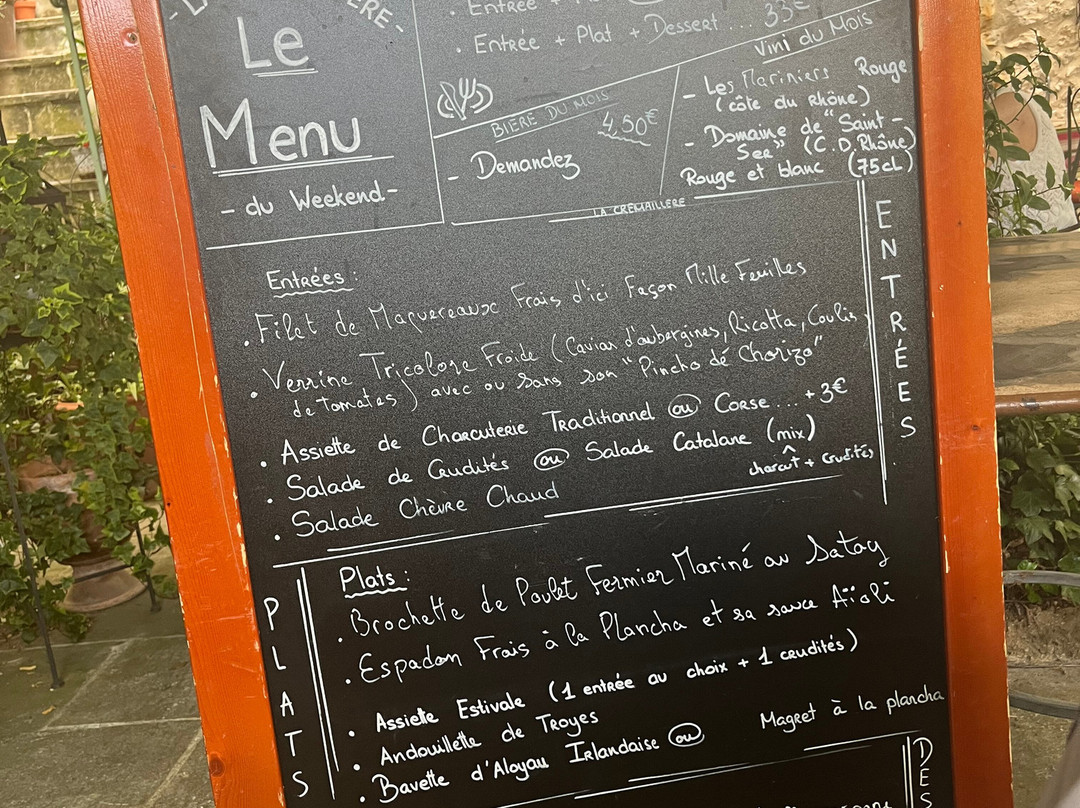 Le
Menu
- du Weekend -
. Entrée +
. Entrée + Plat + Dessert ... 33€
BIERE DU MOIS
4,50€
- Demandez
Vini du Mois
- Les Mariniers Rouge
(côte du Rhône)
- Domaine de "Saint-
See" (C.D.Rhône)
Rouge et blanc (75cL)
LA CREMAILLERE
ENTRÉES
Entrées :
. Filet de Maquereaux Frais d'ici Façon Mille Feuilles
. Verrine Tricolore Froide (Caviar d'aubergines, Ricotta, Coulis
de Tomates) avec ou sans son "Pincho dé Chorizo"
. Assiette de Charcuterie Traditionnel ou Corse ... +3€
. Salade de Crudités ou Salade Catalane (mix)
charcut + crudités
. Salade Chèvre Chaud
PLATS
Plats :
. Brochette de Poulet Fermier Mariné au Satay
. Espadon Frais à la Plancha et sa sauce Aïoli
. Assiette Estivale (1 entrée au choix + 1 crudités)
. Andouillette de Troyes
. Bavette d'Aloyau Irlandaise ou Magret à la plancha
DES